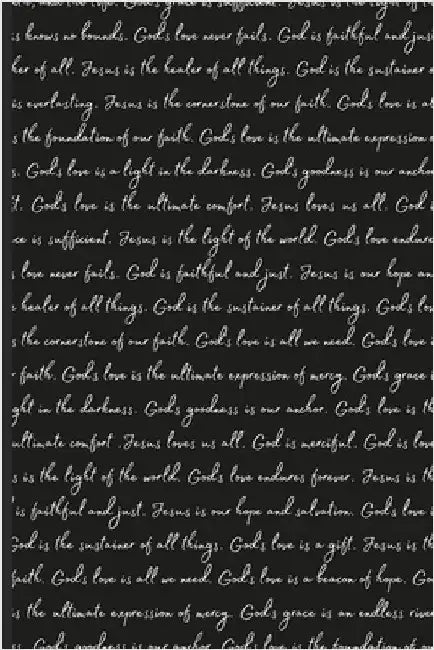 s knows no bounds. God's love never fails. God is faithful and jus
her of all. Jesus is the healer of all things. God is the sustainer o
is everlasting. Jesus is the cornerstone of our faith. God's love is
s the foundation of our faith. God's love is the ultimate expression
s. God's love is a light in the darkness. God's goodness is our ancho
t. God's love is the ultimate comfort. Jesus loves us all. God i
ce is sufficient. Jesus is the light of the world. God's love endure
s love never fails. God is faithful and just. Jesus is our hope an
e healer of all things. God is the sustainer of all things. God's lov
s the cornerstone of our faith. God's love is all we need. God's love i
r faith. God's love is the ultimate expression of mercy. God's grace i
ght in the darkness. God's goodness is our anchor. God's love is th
ultimate comfort. Jesus loves us all. God is merciful. God is love
s is the light of the world. God's love endures forever. Jesus is th
is faithful and just. Jesus is our hope and salvation. God's love i
God is the sustainer of all things. God's love is a gift. Jesus is th
faith. God's love is all we need. God's love is a beacon of hope. Go
is the ultimate expression of mercy. God's grace is an endless river
s. God's goodness is our anchor. God's love is the foundation of our